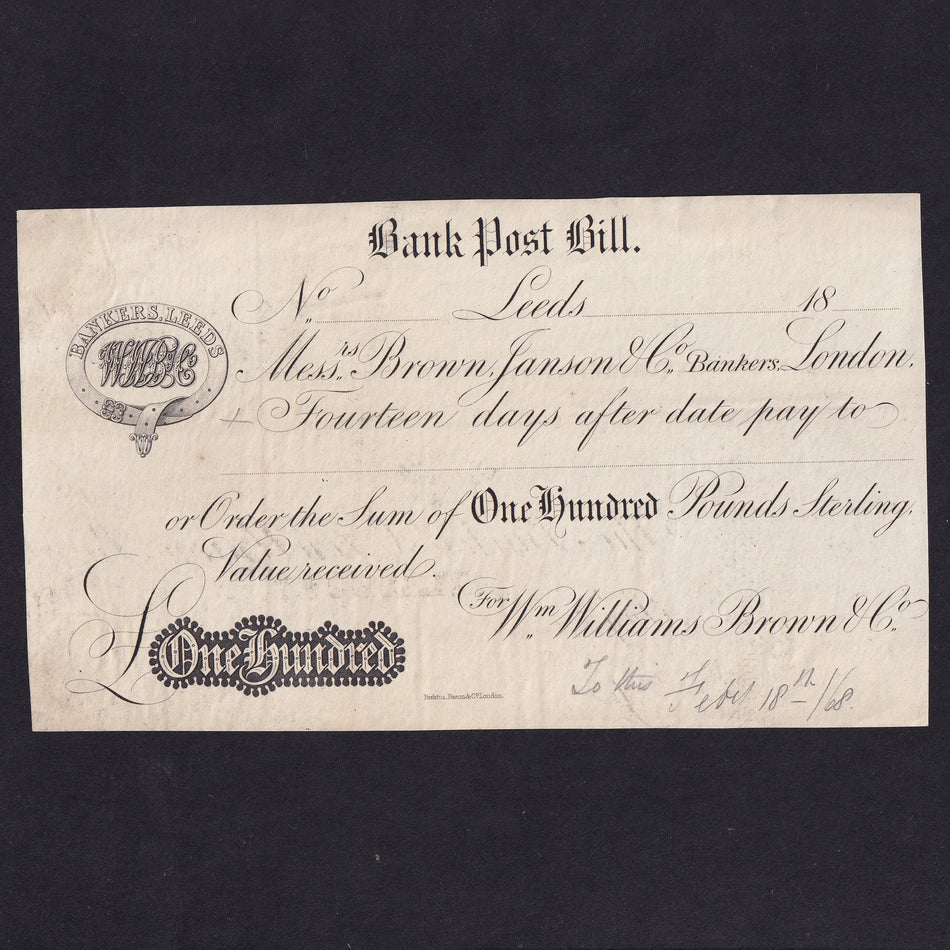 Bank Post Bill.
No Leeds 18
BANKERS, LEEDS
WWB&Co
Messrs. Brown, Janson & Co. Bankers, London.
Fourteen days after date pay to
or Order the Sum of One Hundred Pounds Sterling,
Value received.
For Wm. Williams Brown & Co.
£ One Hundred
Perkins, Bacon & Co. London.
To this Feby 18th /68.